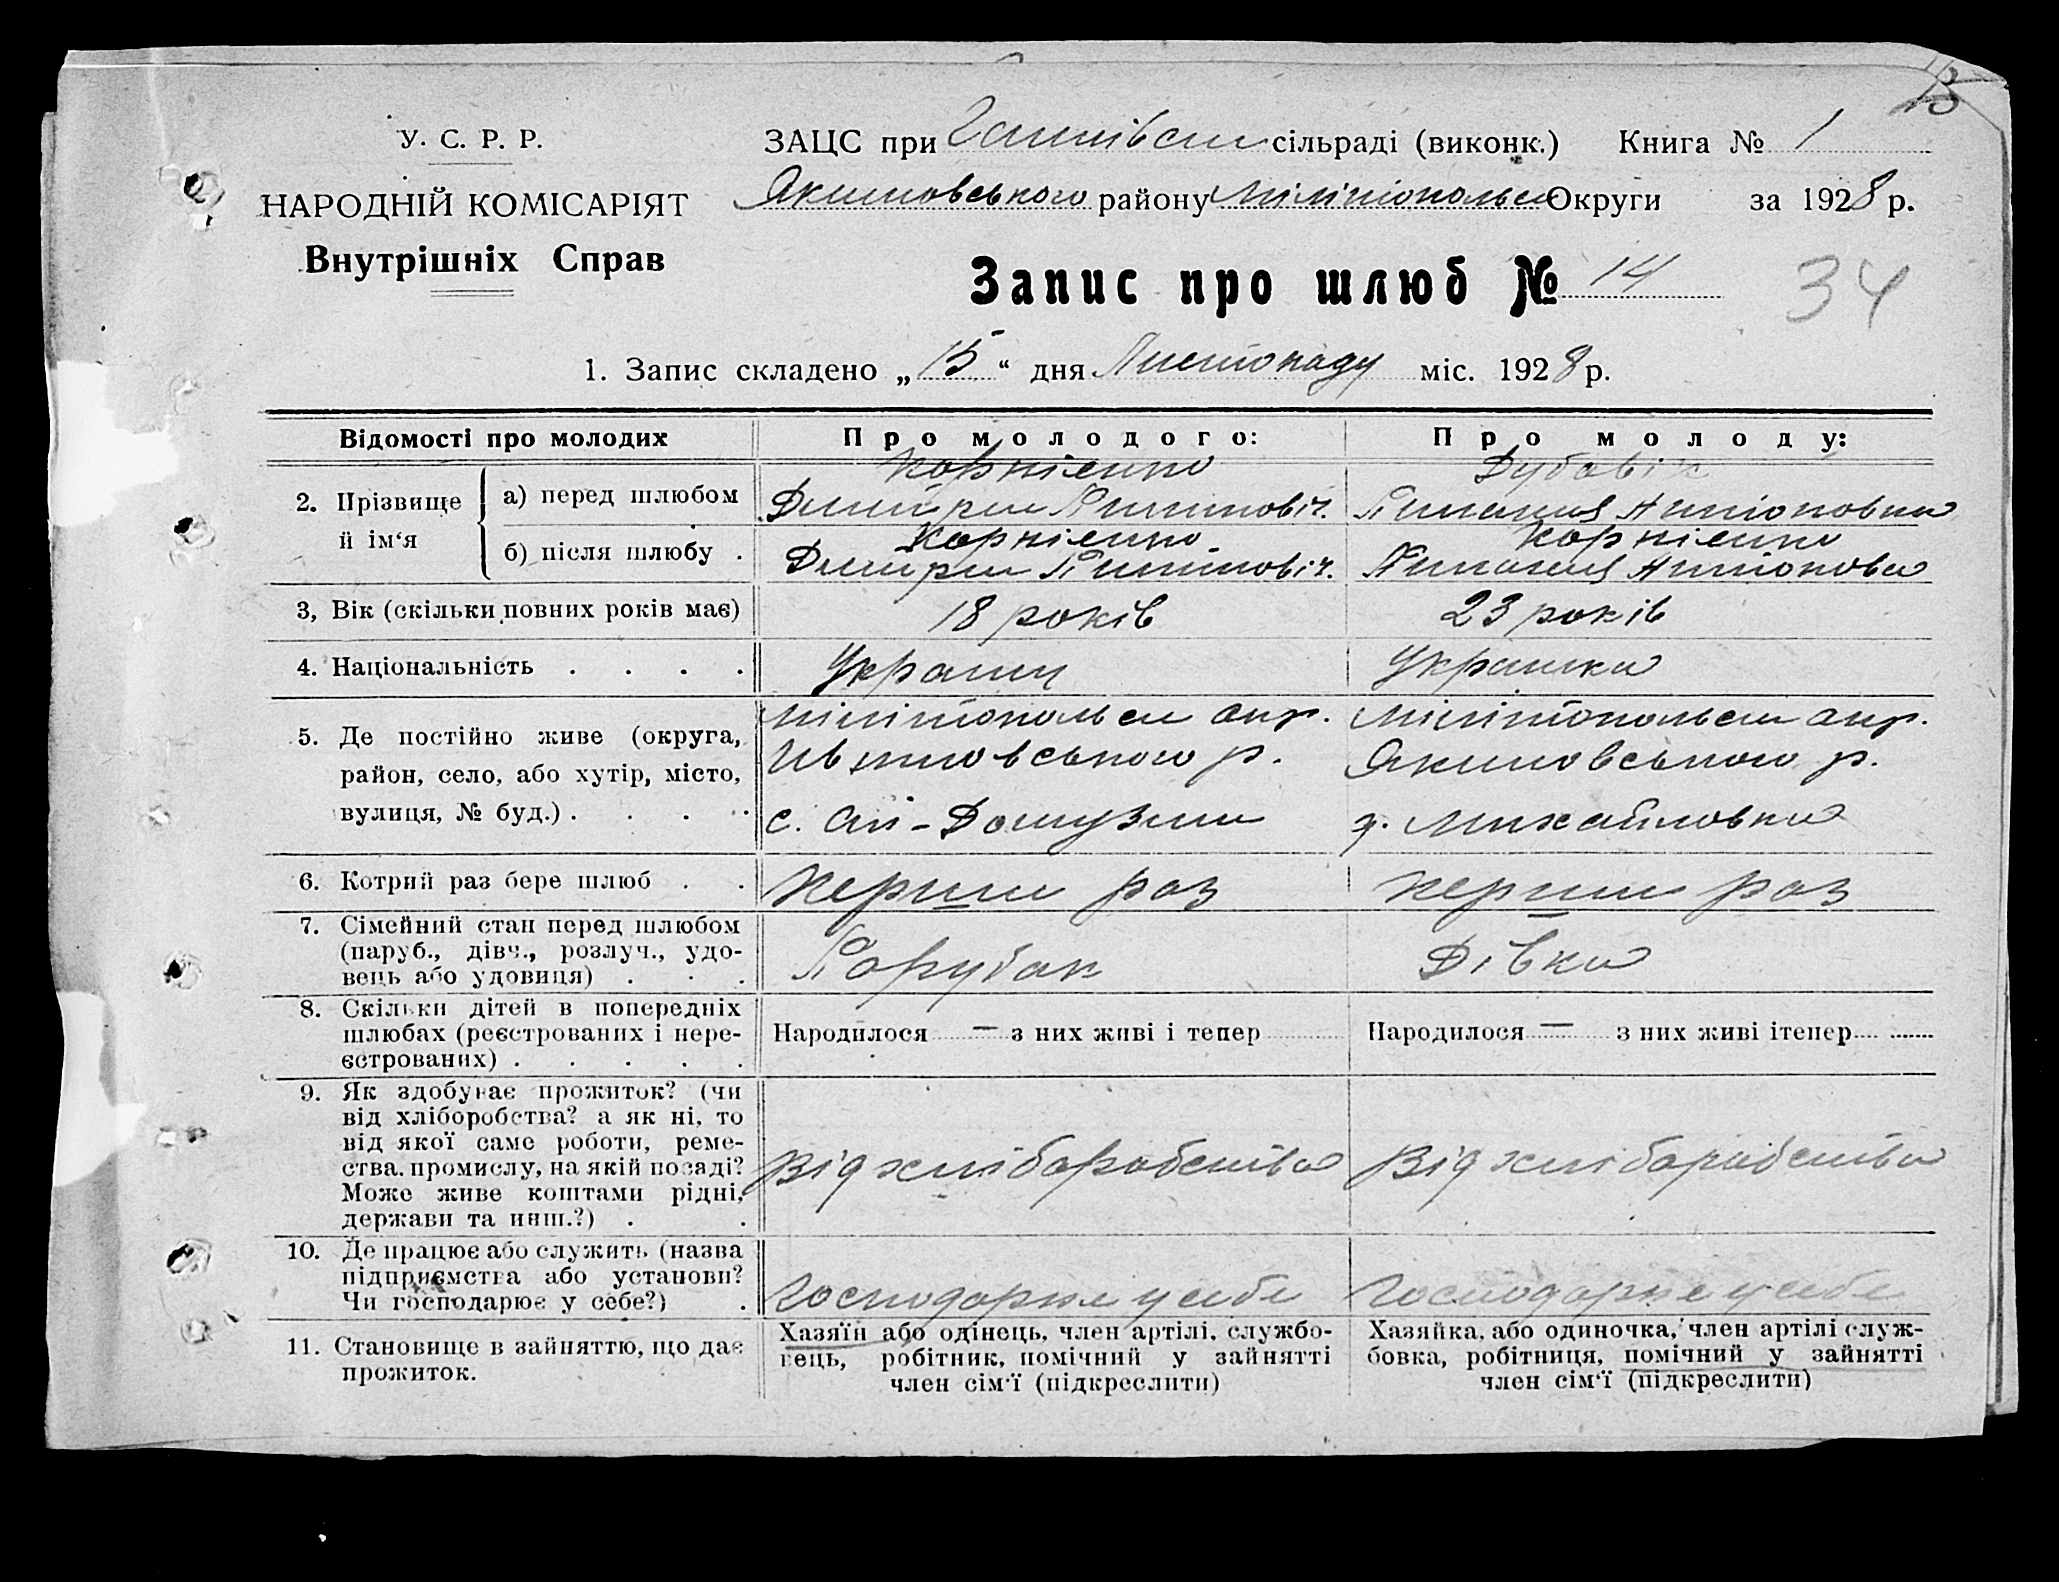 13
У. С. Р. Р.
ЗАЦС при сільраді (виконк.) Книга № 1
НАРОДНІЙ КОМІСАРІЯТ
Якимовського району Мілітопольск Округи за 1928 р.
Внутрішніх Справ
Запис про шлюб № 14
34
1. Запис складено „15“ дня Листопаду міс. 1928 р.
Відомості про молодих Про молодого: Про молоду:
2. Прізвище й ім‘я
а) перед шлюбом Корнієнко Дубовік
Дмитрии Антоновна
б) після шлюбу . Корнієнко Корнієнко
Дмитрии Антонова
3, Вік (скільки повних років має) 18 років 23 років
4. Національність . . . . Украинец Украинка
5. Де постійно живе (округа, Мілітопольск окр. Мілітопольск окр.
район, село, або хутір, місто, р. Якимовського р.
вулиця, № буд.) . . . . с. х. Михайловка
6. Котрий раз бере шлюб . . перши раз перши раз
7. Сімейний стан перед шлюбом
(паруб., дівч., розлуч., удо-
вець або удовиця) . . . Парубок Дівка
8. Скільки дітей в попередніх
шлюбах (реєстрованих і нере-
єстрованих) . . . . .
Народилося — з них живі і тепер Народилося — з них живі ітепер
9. Як здобуває прожиток? (чи
від хліборобства? а як ні, то
від якої саме роботи, реме-
ства, промислу, на якій посаді?
Може живе коштами рідні,
держави та инш.?) . .
Від хліборобства Від хліборобства
10. Де працює або служить (назва
підприємства або установи?
Чи господарює у себе?) .
Господарює у себе Господарює у себе
11. Становище в зайняттю, що дає
прожиток.
Хазяїн або одінець, член артілі, службо-
вець, робітник, помічний у зайнятті
член сім‘ї (підкреслити)
Хазяйка, або одиночка, член артілі служ-
бовка, робітниця, помічний у зайнятті
член сім‘ї (підкреслити)